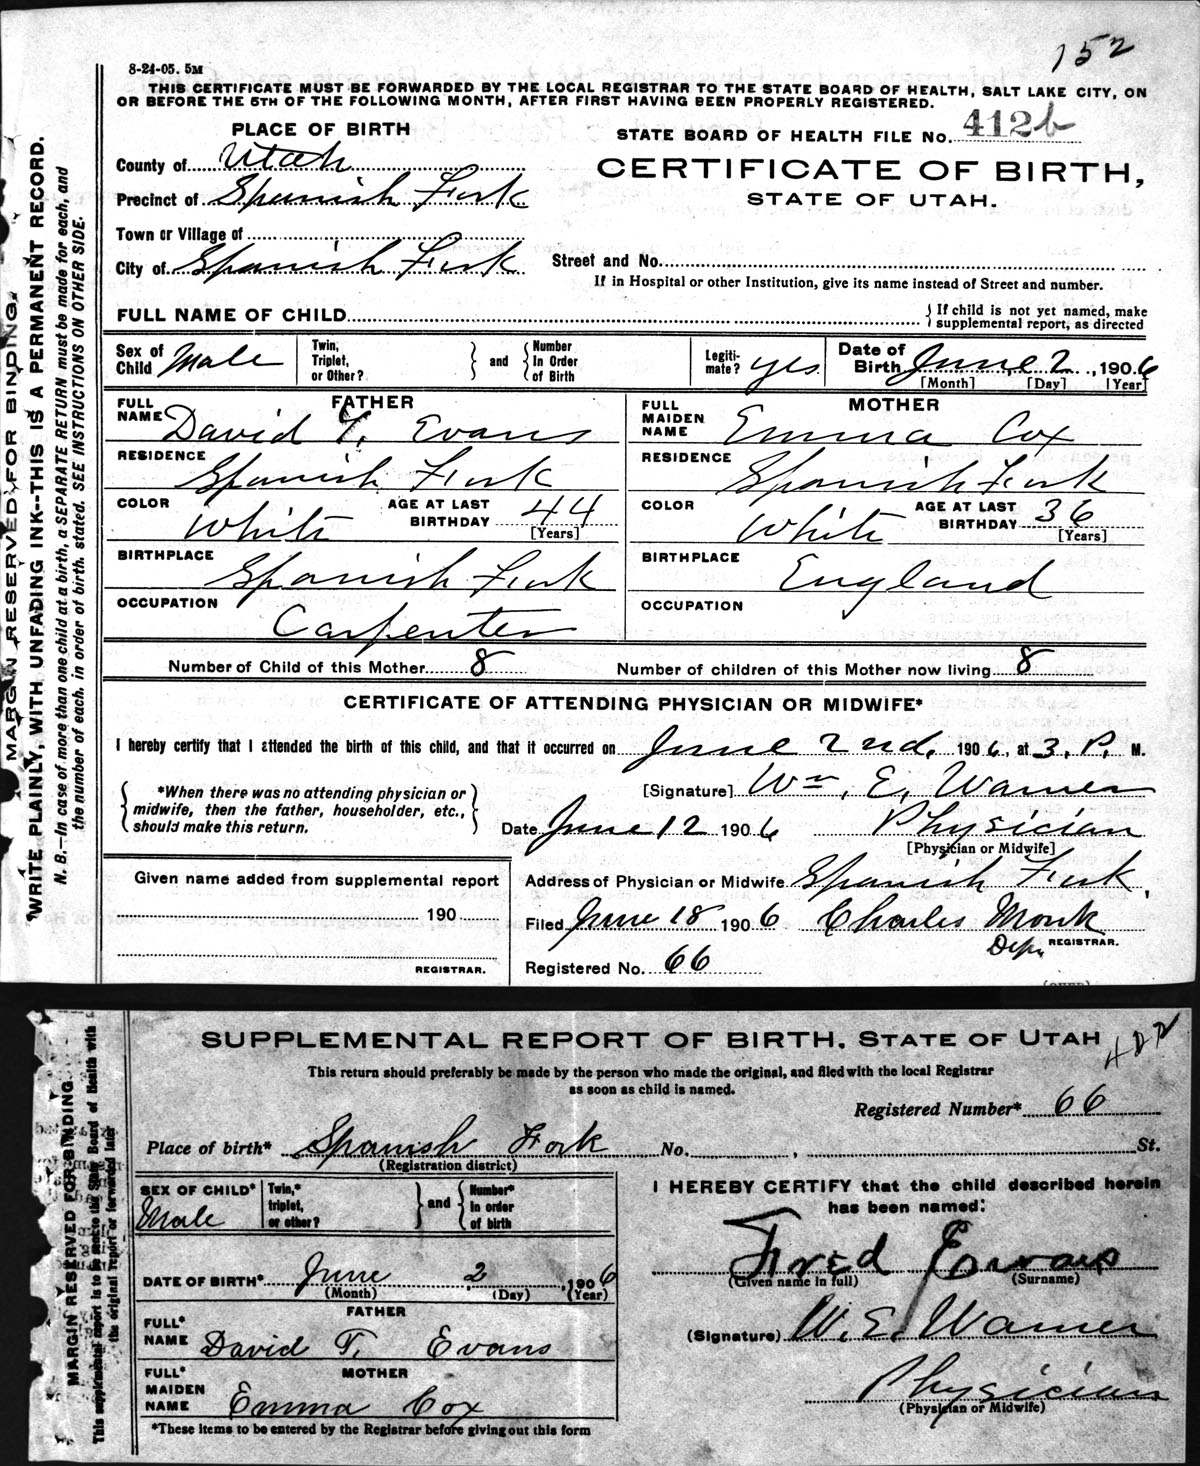 152
8-24-05. 5M
THIS CERTIFICATE MUST BE FORWARDED BY THE LOCAL REGISTRAR TO THE STATE BOARD OF HEALTH, SALT LAKE CITY, ON
OR BEFORE THE 5TH OF THE FOLLOWING MONTH, AFTER FIRST HAVING BEEN PROPERLY REGISTERED.
MARGIN RESERVED FOR BINDING.
WRITE PLAINLY, WITH UNFADING INK--THIS IS A PERMANENT RECORD.
N. B.—In case of more than one child at a birth, a SEPARATE RETURN must be made for each, and
the number of each, in order of birth, stated. SEE INSTRUCTIONS ON OTHER SIDE.
PLACE OF BIRTH
STATE BOARD OF HEALTH FILE No. 412b
County of Utah
CERTIFICATE OF BIRTH,
Precinct of Spanish Fork
STATE OF UTAH.
Town or Village of
City of Spanish Fork
Street and No.
If in Hospital or other Institution, give its name instead of Street and number.
FULL NAME OF CHILD
If child is not yet named, make
supplemental report, as directed
Sex of Child Male
Twin, Triplet, or Other? and Number In Order of Birth
Legiti-mate? yes
Date of Birth June 2, 1906
[Month] [Day] [Year]
FATHER
FULL NAME David T. Evans
RESIDENCE Spanish Fork
COLOR White AGE AT LAST BIRTHDAY 44
[Years]
BIRTHPLACE Spanish Fork
OCCUPATION Carpenter
MOTHER
FULL MAIDEN NAME Emma Cox
RESIDENCE Spanish Fork
COLOR White AGE AT LAST BIRTHDAY 36
[Years]
BIRTHPLACE England
OCCUPATION
Number of Child of this Mother 8 Number of children of this Mother now living 8
CERTIFICATE OF ATTENDING PHYSICIAN OR MIDWIFE*
I hereby certify that I attended the birth of this child, and that it occurred on June 2nd, 1906, at 3. P. M.
*When there was no attending physician or
midwife, then the father, householder, etc.,
should make this return.
[Signature] Wm. E. Warner
Date June 12 1906 Physician
[Physician or Midwife]
Given name added from supplemental report
190
REGISTRAR.
Address of Physician or Midwife Spanish Fork.
Filed June 18 1906 Charles Monk
Dep. REGISTRAR.
Registered No. 66
SUPPLEMENTAL REPORT OF BIRTH, STATE OF UTAH
This return should preferably be made by the person who made the original, and filed with the local Registrar
as soon as child is named.
MARGIN RESERVED FOR BINDING.
This supplemental report is to be sent to the State Board of Health with
the original report or forwarded later
Registered Number* 66
Place of birth* Spanish Fork No. , St.
(Registration district)
SEX OF CHILD* Male
Twin,* triplet, or other? and Number* In order of birth
DATE OF BIRTH* June 2 1906
(Month) (Day) (Year)
FATHER
FULL* NAME David T. Evans
MOTHER
FULL* MAIDEN NAME Emma Cox
*These items to be entered by the Registrar before giving out this form
I HEREBY CERTIFY that the child described herein
has been named:
Fred Evans
(Given name in full) (Surname)
(Signature) W. E. Warner
Physician
(Physician or Midwife)